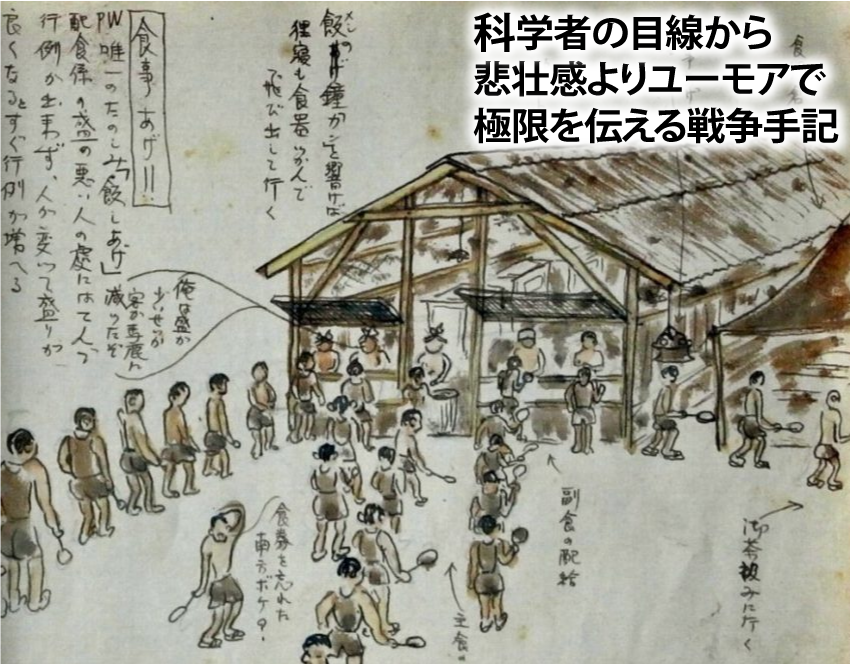 科学者の目線から
悲壮感よりユーモアで
極限を伝える戦争手記
鐘がごーと響けば
狸寝も食器つかんで
飛び出して行く
食事あげ
PW唯一のたのしみ「飯しあげ」
配食係の盛の悪い人の處にはてんで
行例が出来ず、人が変って盛りが
良くなるとすぐ行例が増へる
俺は盛が
少いせいか
客が馬鹿に
減ったぞ
食券を忘れた
南方ボケ
主食の
副食の配給
御茶汲みに行く